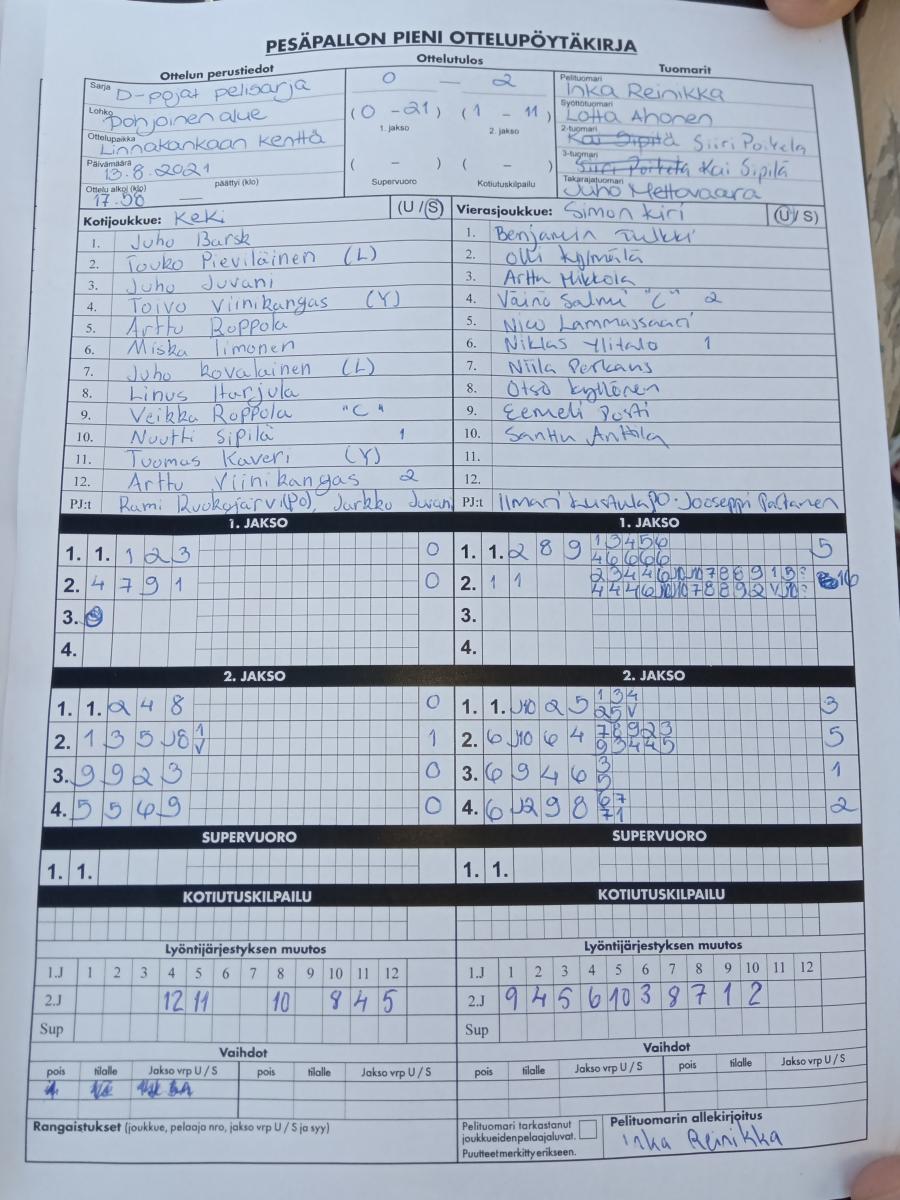 PESÄPALLON PIENI OTTELUPÖYTÄKIRJA
Ottelun perustiedot Ottelutulos Tuomarit
Sarja D-pojat pelisarja
Lohko pohjoinen alue
Ottelupaikka Linnakankaan kenttä
Päivämäärä 13.8.2021
Ottelu alkoi (klo) 17.58 päättyi (klo) —
0 — 2
(0 - 21) (1 - 11)
1. jakso 2. jakso
( - ) ( - )
Supervuoro Kotiutuskilpailu
Pelituomari Inka Reinikka
Syöttötuomari Lotta Ahonen
2-tuomari Kai Sipilä Siiri Poikela
3-tuomari Siiri Poikela Kai Sipilä
Takarajatuomari Juho Mettovaara
Kotijoukkue: Keki (U / S)
1. Juho Barsk
2. Touko Pieviläinen (L)
3. Juho Juvani
4. Toivo Viinikangas (Y)
5. Arttu Roppola
6. Miska Iimonen
7. Juho Kovalainen (L)
8. Linus Harjula
9. Veikka Roppola "C"
10. Nuutti Sipilä 1
11. Tuomas Kaveri (Y)
12. Arttu Viinikangas 2
PJ:t Rami Ruokojärvi(PO), Jarkko Juvani
Vierasjoukkue: Simon kiri (U / S)
1. Benjamin Tulkki
2. Olli Kylmälä
3. Arttu Mikkola
4. Väinö Salmi "C" 2
5. Nico Lammassaari
6. Niklas Ylitalo 1
7. Niila Perkans
8. Otso Kyllönen
9. Eemeli Posti
10. Santtu Anttila
11.
12.
PJ:t Ilmari Kustula PO. Jooseppi Paltanen
1. JAKSO
1. 1. 1 2 3 0
2. 4 7 9 1 0
3.
4.
1. JAKSO
1. 1. 2 8 9 1 3 4 5 6 5
4 6 6 6 6
2. 1 1 16
3.
4.
2. JAKSO
1. 1. 2 4 8 0
2. 1 3 5 J8 1 1
V
3. 9 9 2 3 0
4. 5 5 6 9 0
2. JAKSO
1. 1. J10 2 5 1 3 4 3
2 5 V
2. 6 J10 6 4 7 8 9 2 3 5
9 3 4 4 5
3. 6 9 4 6 3 1
5
4. 6 J2 9 8 6 7 2
7 1
SUPERVUORO SUPERVUORO
1. 1. 1. 1.
KOTIUTUSKILPAILU KOTIUTUSKILPAILU
Lyöntijärjestyksen muutos
1.J 1 2 3 4 5 6 7 8 9 10 11 12
2.J 12 11 10 8 4 5
Sup
Lyöntijärjestyksen muutos
1.J 1 2 3 4 5 6 7 8 9 10 11 12
2.J 9 4 5 6 10 3 8 7 1 2
Sup
Vaihdot Vaihdot
pois tilalle Jakso vrp U / S pois tilalle Jakso vrp U / S
pois tilalle Jakso vrp U / S pois tilalle Jakso vrp U / S
Rangaistukset (joukkue, pelaaja nro, jakso vrp U / S ja syy)
Pelituomari tarkastanut
joukkueiden pelaajaluvat.
Puutteet merkitty erikseen.
Pelituomarin allekirjoitus
Inka Reinikka